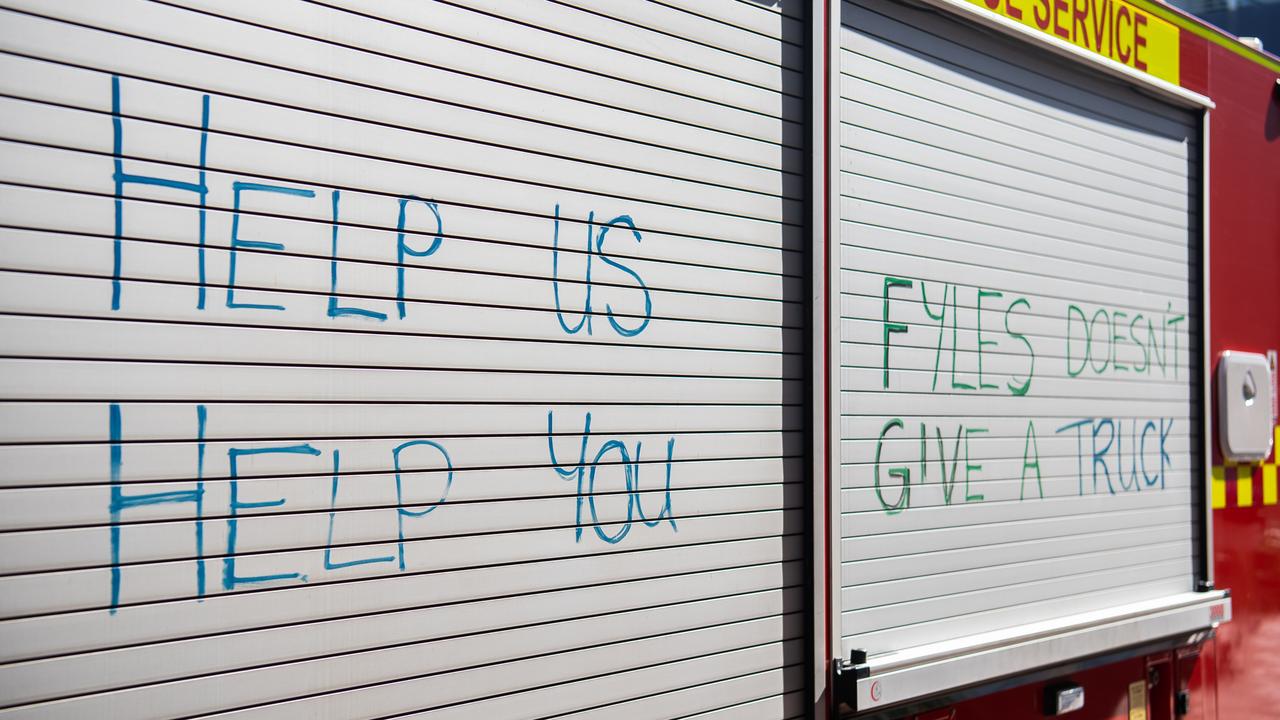 SERVICE
HELP US
HELP YOU
FYLES DOESN'T
GIVE A TRUCK